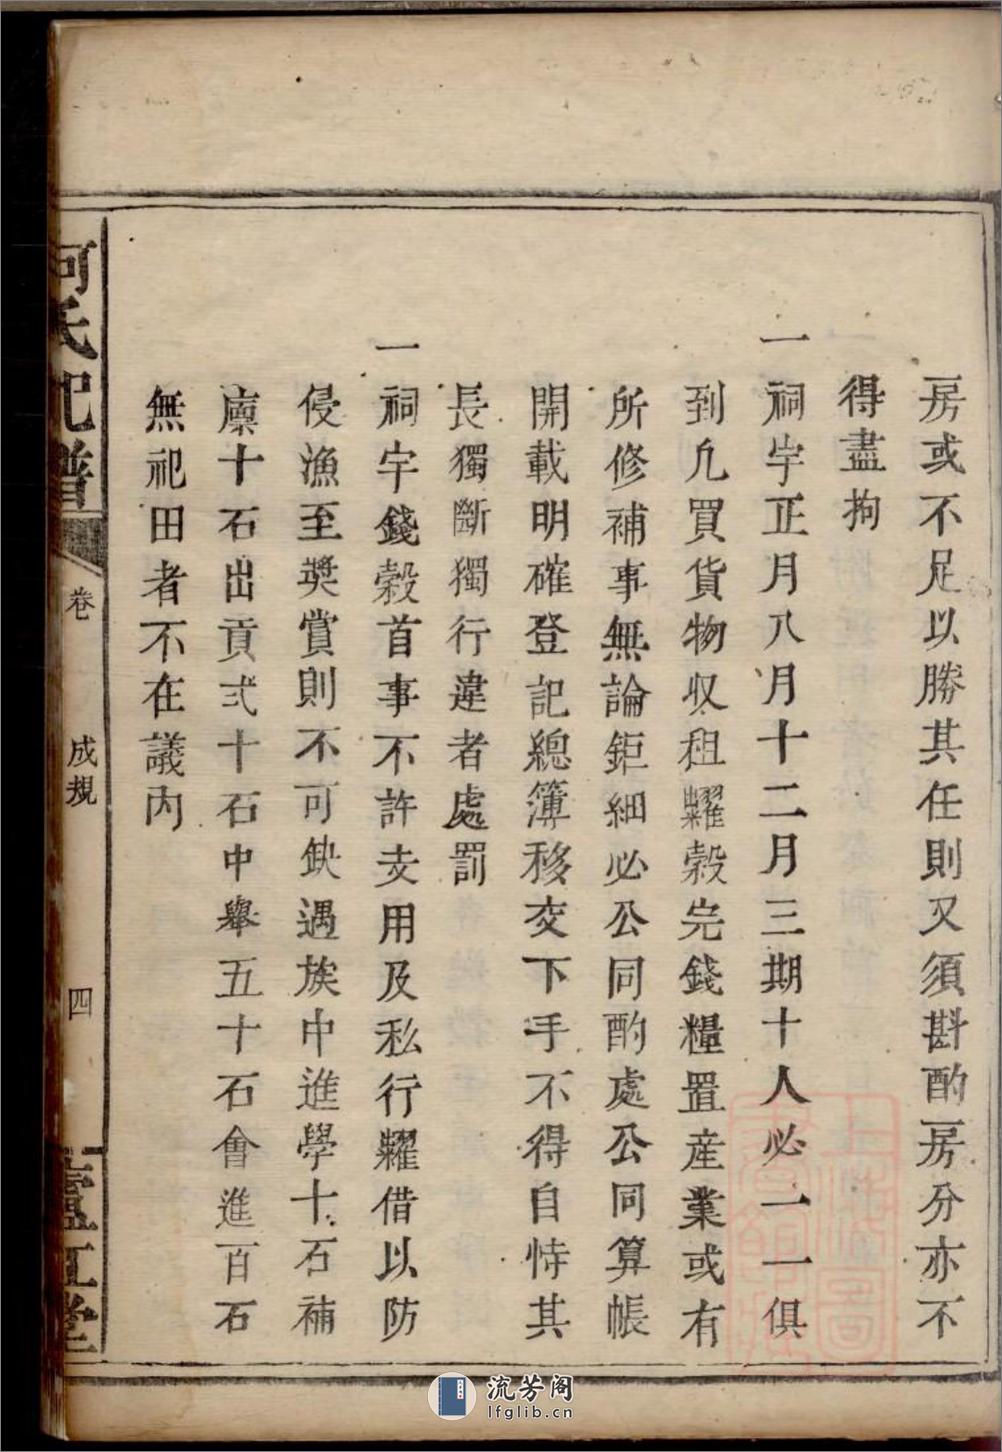 房或不足以勝其任則又須斟酌房分亦不
得盡拘
一祠宇正月八月十二月三期十人必一一俱
到凢買貨物収租糶穀完錢糧置産業或有
所修補事無論鉅細必公同酌處公同算帳
開載明確登記總簿移交下手不得自恃其
長獨斷獨行違者處罰
一祠宇錢穀首事不許支用及私行糶借以防
侵漁至奬賞則不可缺遇族中進學十石補
廩十石出貢弍十石中舉五十石會進百石
無祀田者不在議內
何氏祀譜
卷
成規
四
廬江堂
流芳阁
lfglib.cn